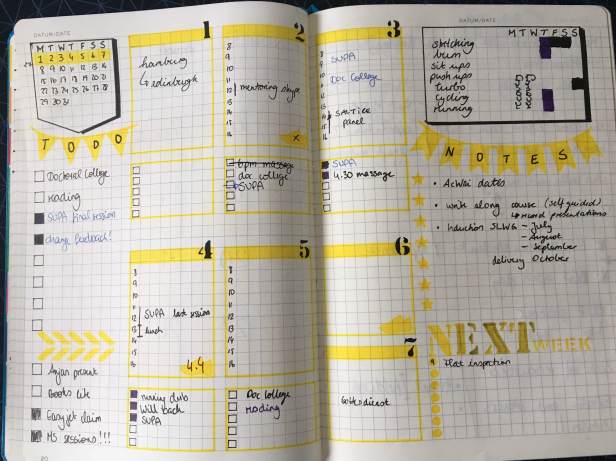 DATUM/DATE
M T W T F S S
1 2 3 4 5 6 7
8 9 10 11 12 13 14
15 16 17 18 19 20 21
22 23 24 25 26 27 28
29 30 31
TODO
Doctoral College
Moding
SUPA final session
change feedback!
Arjan present
Books list
Easyjet claim
MS sessions!!!
1
hamburg
↳ edinburgh
2
8
9
10
11
12 mentoring skype
13
14
15
16
x
6pm massage
doc college
SUPA
3
8
9 SUPA
10
11 Doc College
12
13
14 SANTICE
15 panel
16
SUPA
4.30 massage
4
8
9
10
11
12 SUPA last session
13 lunch
14
15
16
4.4
running club
Will back
SUPA
5
8
9
10
11
12
13
14
15
16
Doc College
Moding
6
7
Gottesdienst
DATUM/DATE
M T W T F S S
stretching
burn
sit ups
push ups
turbo
cycling
running
recovery
recovery
NOTES
• dates
• work along course (self guided)
↳ record presentations
• Induction SLWG - July
- August
- September
delivery October
NEXT WEEK
Flat inspection